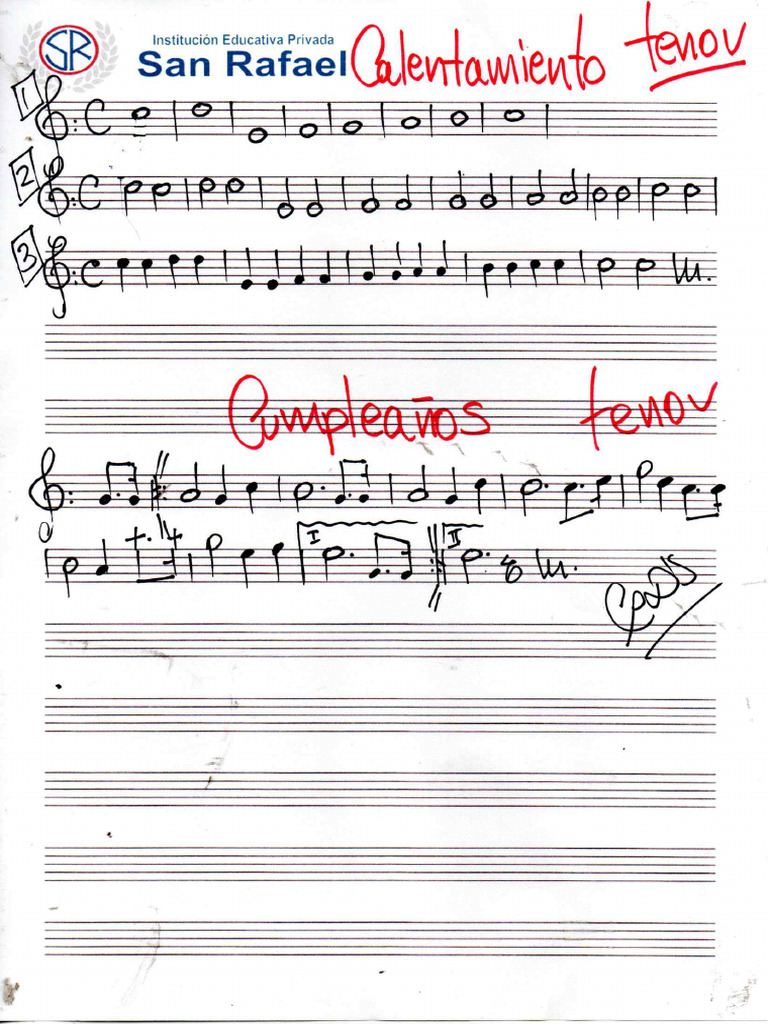 SR Institución Educativa Privada
San Rafael Calentamiento tenor
1
2
3
Cumpleaños tenor
I II